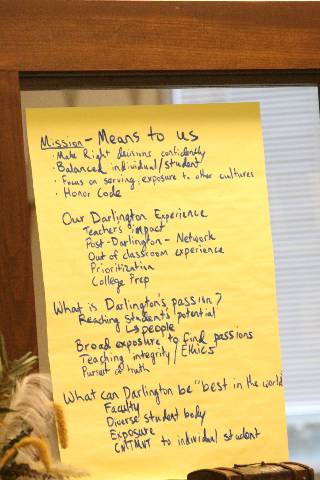 Mission - Means to us
· Make Right decisions confidently
· Balanced individual/student
· Focus on serving, exposure to other cultures
· Honor Code
Our Darlington Experience
Teachers impact
Post-Darlington - Network
Out of classroom experience
Prioritization
College Prep
What is Darlington's passion?
Reaching students' potential
↳ people
Broad exposure to find passions
Teaching integrity/Ethics
Pursuit of truth
What can Darlington be "best in the world
Faculty
Diverse student body
Exposure
CMTMNT to individual student